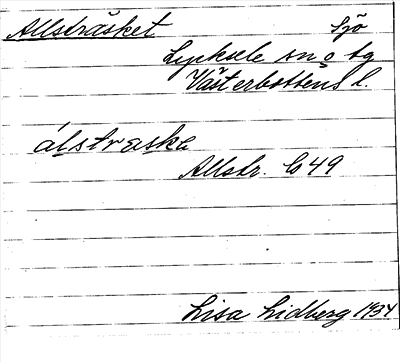 Allsträsket Sjö
Lycksele sn o tg
Västerbottens l.
álstrɛska
Allstr. 649
Lisa Lidberg 1934